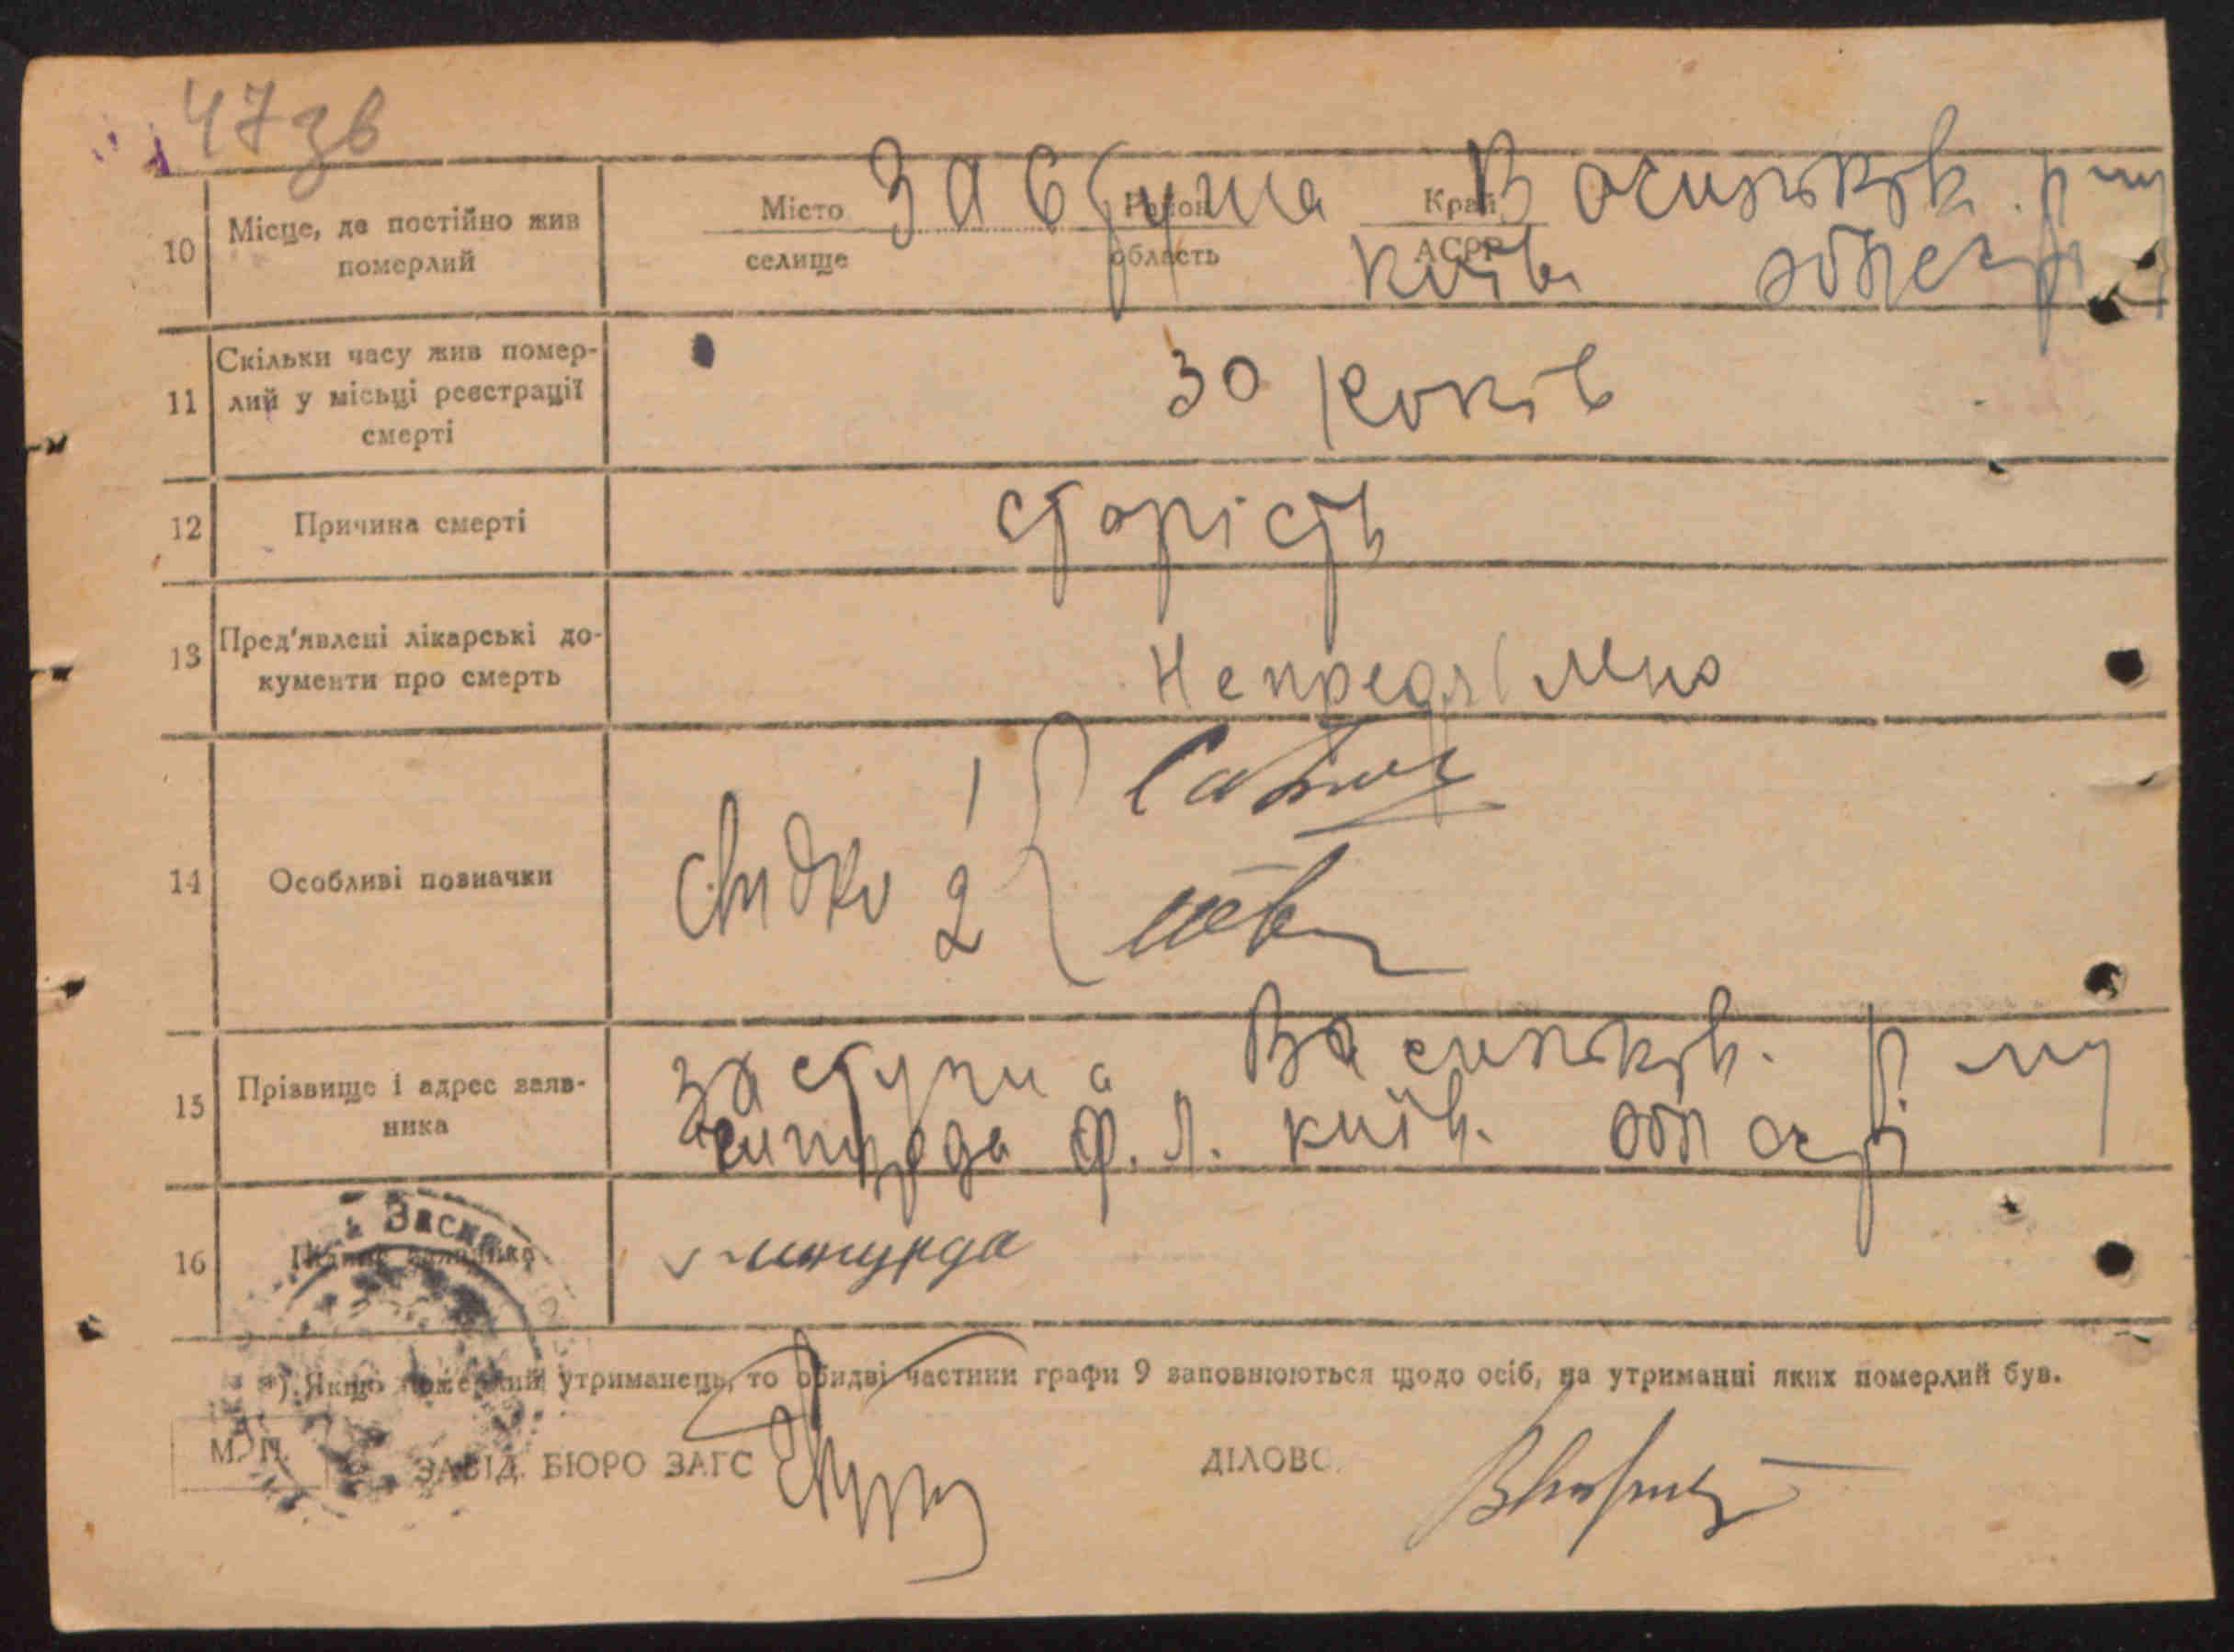 47зв
10 Місце, де постійно жив померлий
Місто селище Район область Край АСРР
Васильків. р-ну
Київ. області
11 Скільки часу жив помер-
лий у місьці реєстрації
смерті
30 років
12 Причина смерті
старість
13 Пред'явлені лікарські до-
кументи про смерть
Непредявлено
14 Особливі позначки
свидки 1
2
15 Прізвище і адрес заяв-
ника
Васильків. р-ну
Ф. Л. Київ. області
16 Підпис заявника
*) Якщо померлий утриманець, то обидві частини графи 9 заповнюються щодо осіб, на утриманні яких померлий був.
М. П.
ЗАВІД. БЮРО ЗАГС
ДІЛОВ.